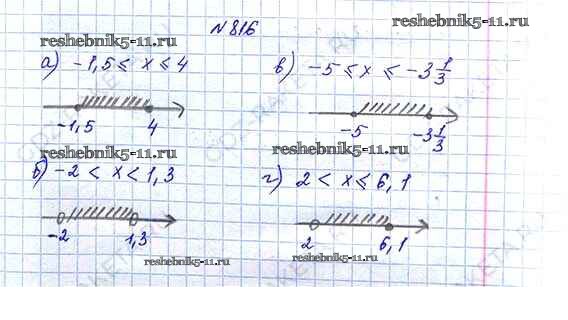 № 816
reshebnik5-11.ru
reshebnik5-11.ru
а) -1,5 ≤ x ≤ 4
-1,5 4
reshebnik5-11.ru
б) -2 < x < 1,3
-2 1,3
reshebnik5-11.ru
в) -5 ≤ x ≤ -3 1/3
-5 -3 1/3
reshebnik5-11.ru
г) 2 < x ≤ 6,1
2 6,1
reshebnik5-11.ru